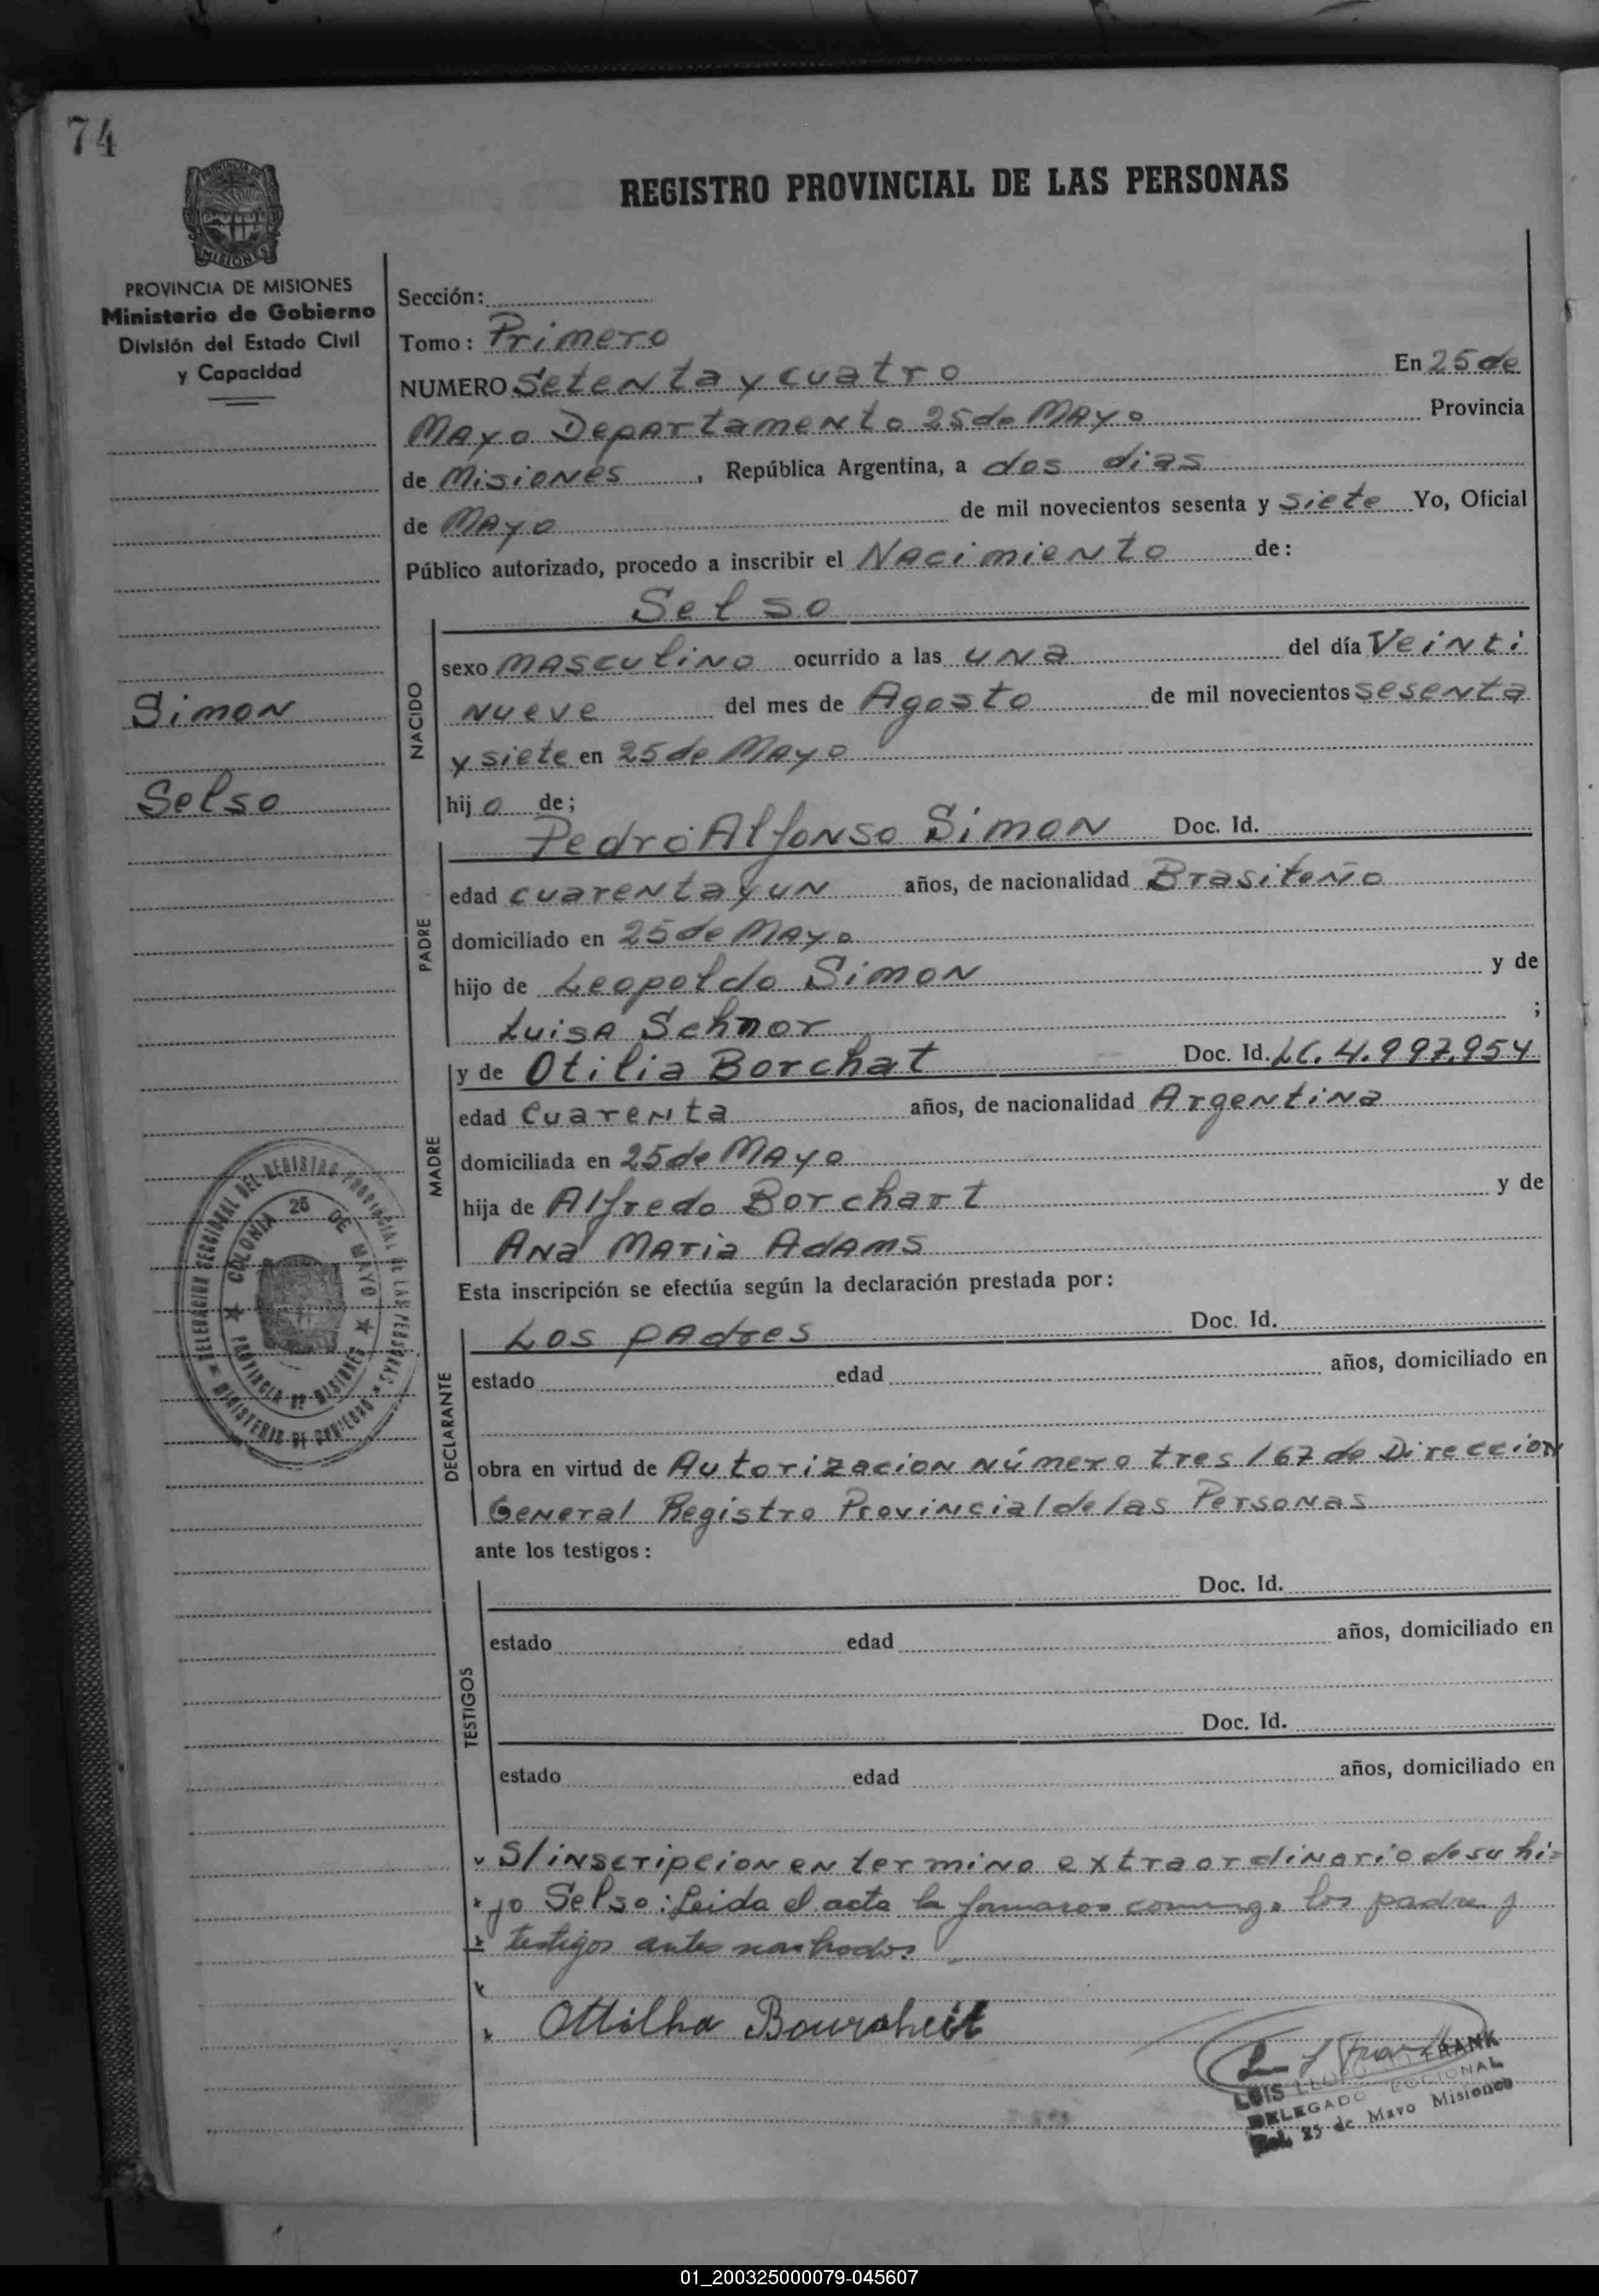 74
REGISTRO PROVINCIAL DE LAS PERSONAS
PROVINCIA DE
MISIONES
PROVINCIA DE MISIONES
Ministerio de Gobierno
División del Estado Civil
y Capacidad
Simon
Selso
DELEGACION SECCIONAL DEL REGISTRO PROVINCIAL DE LAS PERSONAS
MINISTERIO DE GOBIERNO
COLONIA 25 DE MAYO
PROVINCIA DE MISIONES
Sección:
Tomo: Primero
NUMERO Setenta y cuatro En 25 de
Mayo Departamento 25 de Mayo Provincia
de Misiones, República Argentina, a dos dias
de Mayo de mil novecientos sesenta y siete Yo, Oficial
Público autorizado, procedo a inscribir el Nacimiento de:
Selso
NACIDO
sexo masculino ocurrido a las una del día Veinti
nueve del mes de Agosto de mil novecientos sesenta
y siete en 25 de Mayo
hijo de;
PADRE
Pedro Alfonso Simon Doc. Id.
edad cuarenta y un años, de nacionalidad Brasileño
domiciliado en 25 de Mayo
hijo de Leopoldo Simon y de
Luisa Schnor ;
MADRE
y de Otilia Borchat Doc. Id. LC. 4.997.954
edad Cuarenta años, de nacionalidad Argentina
domiciliada en 25 de Mayo
hija de Alfredo Borchart y de
Ana Maria Adams
Esta inscripción se efectúa según la declaración prestada por:
DECLARANTE
Los padres Doc. Id.
estado edad años, domiciliado en
obra en virtud de Autorizacion número tres/67 de Direccion
General Registro Provincial de las Personas
ante los testigos:
TESTIGOS
Doc. Id.
estado edad años, domiciliado en
Doc. Id.
estado edad años, domiciliado en
S/inscripcion en termino extraordinario de su hi=
jo Selso: Leida el acta la firmaron conmigo los padre y
testigos antes nombrados
Ottilha
LUIS LEOPOLDO FRANK
DELEGADO SECCIONAL
Col. 25 de Mayo Misiones
01_200325000079-045607